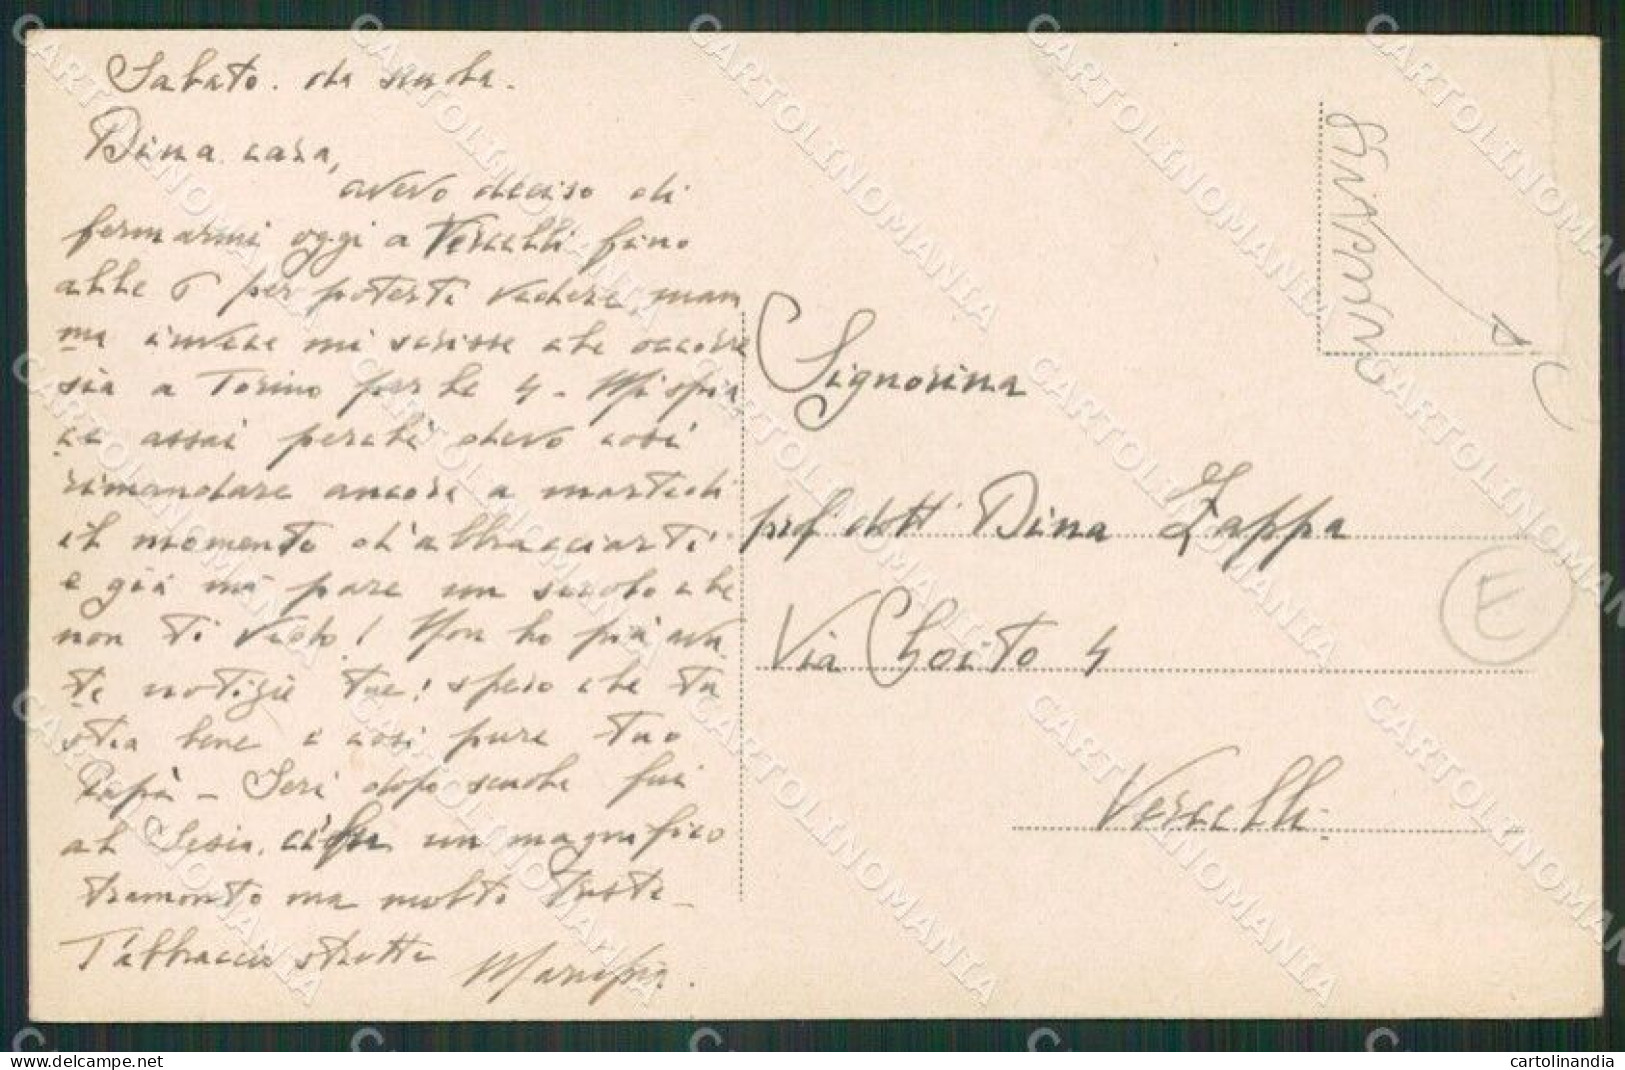 Sabato. da scuola.
Dina cara,
avevo deciso di
fermarmi oggi a Vercelli fino
alle 6 per poterti vedere, mam
ma invece mi scrisse che occorre
sia a Torino per le 4 - Mi spia
ce assai perché devo così
rimandare ancora a martedì
il momento d'abbracciarti
e già mi pare un secolo che
non ti vedo! Non ho più avu
te notizie tue! spero che tu
stia bene e così pure tuo
Papà - Ieri dopo scuola fui
al Sesia. ci fu un magnifico
tramonto ma molto triste -
T'abbraccio stretta
Signorina
prof. dott. Dina Zappa
Via Choito 4
Vercelli.
E
CARTOLINOMANIA
delcampe.net
cartolinandia